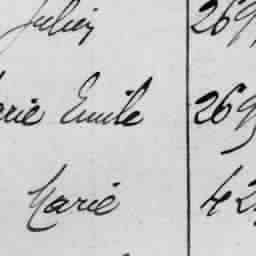 Julien 269
arie Emile 269
Marie 42